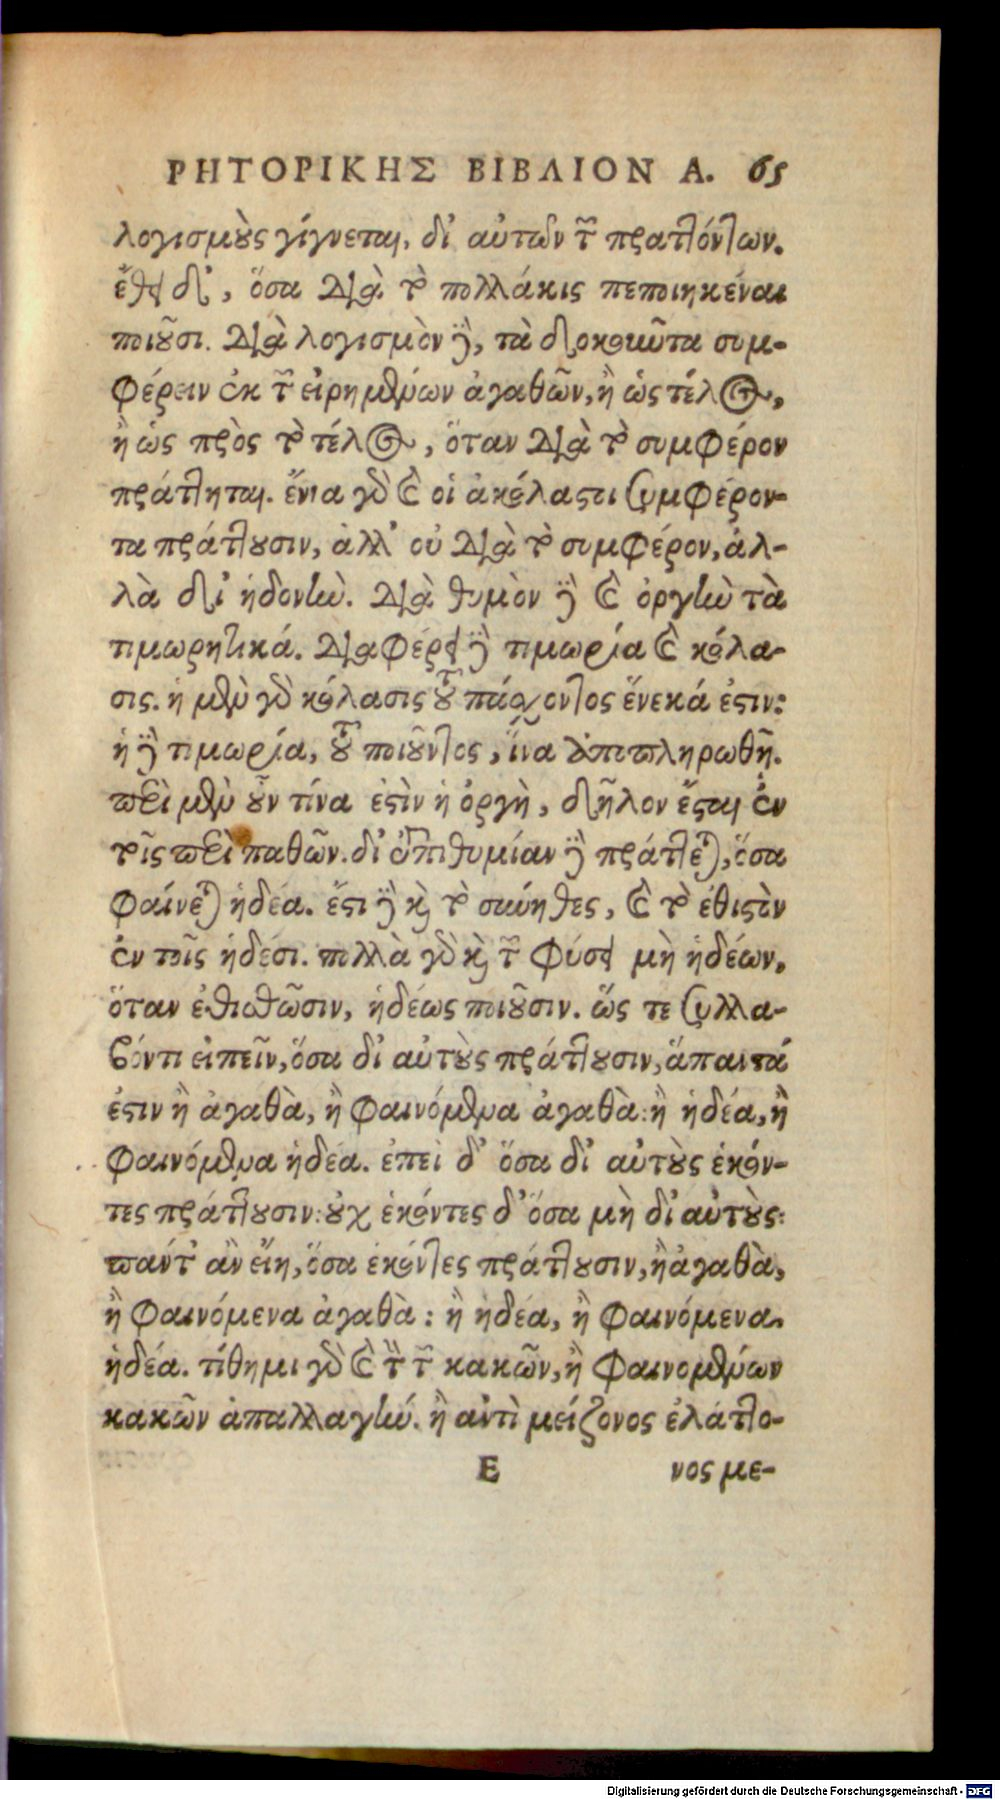 ΡΗΤΟΡΙΚΗΣ ΒΙΒΛΙΟΝ Α. 65
λογισμοὺς γίγνεται, δι' αὐτῶν τῶν πραττόντων.
ἔθει δ', ὅσα διὰ τὸ πολλάκις πεποιηκέναι
ποιοῦσι. διὰ λογισμὸν δὲ, τὰ δοκοῦντα συμ-
φέρειν ἐκ τῶν εἰρημένων ἀγαθῶν, ἢ ὡς τέλος,
ἢ ὡς πρὸς τὸ τέλος, ὅταν διὰ τὸ συμφέρον
πράττηται. ἔνια γὰρ καὶ οἱ ἀκόλαστοι συμφέρον-
τα πράττουσιν, ἀλλ' οὐ διὰ τὸ συμφέρον, ἀλ-
λὰ δι' ἡδονήν. διὰ θυμὸν δὲ καὶ ὀργὴν τὰ
τιμωρητικά. διαφέρει δὲ τιμωρία καὶ κόλα-
σις. ἡ μὲν γὰρ κόλασις τοῦ πάσχοντος ἕνεκά ἐστιν:
ἡ δὲ τιμωρία, τοῦ ποιοῦντος, ἵνα ἀποπληρωθῇ.
περὶ μὲν οὖν τίνα ἐστὶν ἡ ὀργὴ, δῆλον ἔσται ἐν
τοῖς περὶ παθῶν. δι' ἐπιθυμίαν δὲ πράττεται, ὅσα
φαίνεται ἡδέα. ἔστι δὲ καὶ τὸ σύνηθες, καὶ τὸ ἐθιστὸν
ἐν τοῖς ἡδέσι. πολλὰ γὰρ καὶ τῶν φύσει μὴ ἡδέων,
ὅταν ἐθισθῶσιν, ἡδέως ποιοῦσιν. ὥς τε συλλα-
βόντι εἰπεῖν, ὅσα δι' αὐτοὺς πράττουσιν, ἅπαντά
ἐστιν ἢ ἀγαθὰ, ἢ φαινόμενα ἀγαθὰ: ἢ ἡδέα, ἢ
φαινόμενα ἡδέα. ἐπεὶ δ' ὅσα δι' αὐτοὺς ἑκόν-
τες πράττουσιν: οὐχ ἑκόντες δ' ὅσα μὴ δι' αὐτοὺς:
πάντ' ἂν εἴη, ὅσα ἑκόντες πράττουσιν, ἢ ἀγαθὰ,
ἢ φαινόμενα ἀγαθὰ: ἢ ἡδέα, ἢ φαινόμενα
ἡδέα. τίθημι γὰρ καὶ τὴν τῶν κακῶν, ἢ φαινομένων
κακῶν ἀπαλλαγήν. ἢ ἀντὶ μείζονος ἐλάττο-
E νος με-
Digitalisierung gefördert durch die Deutsche Forschungsgemeinschaft - DFG